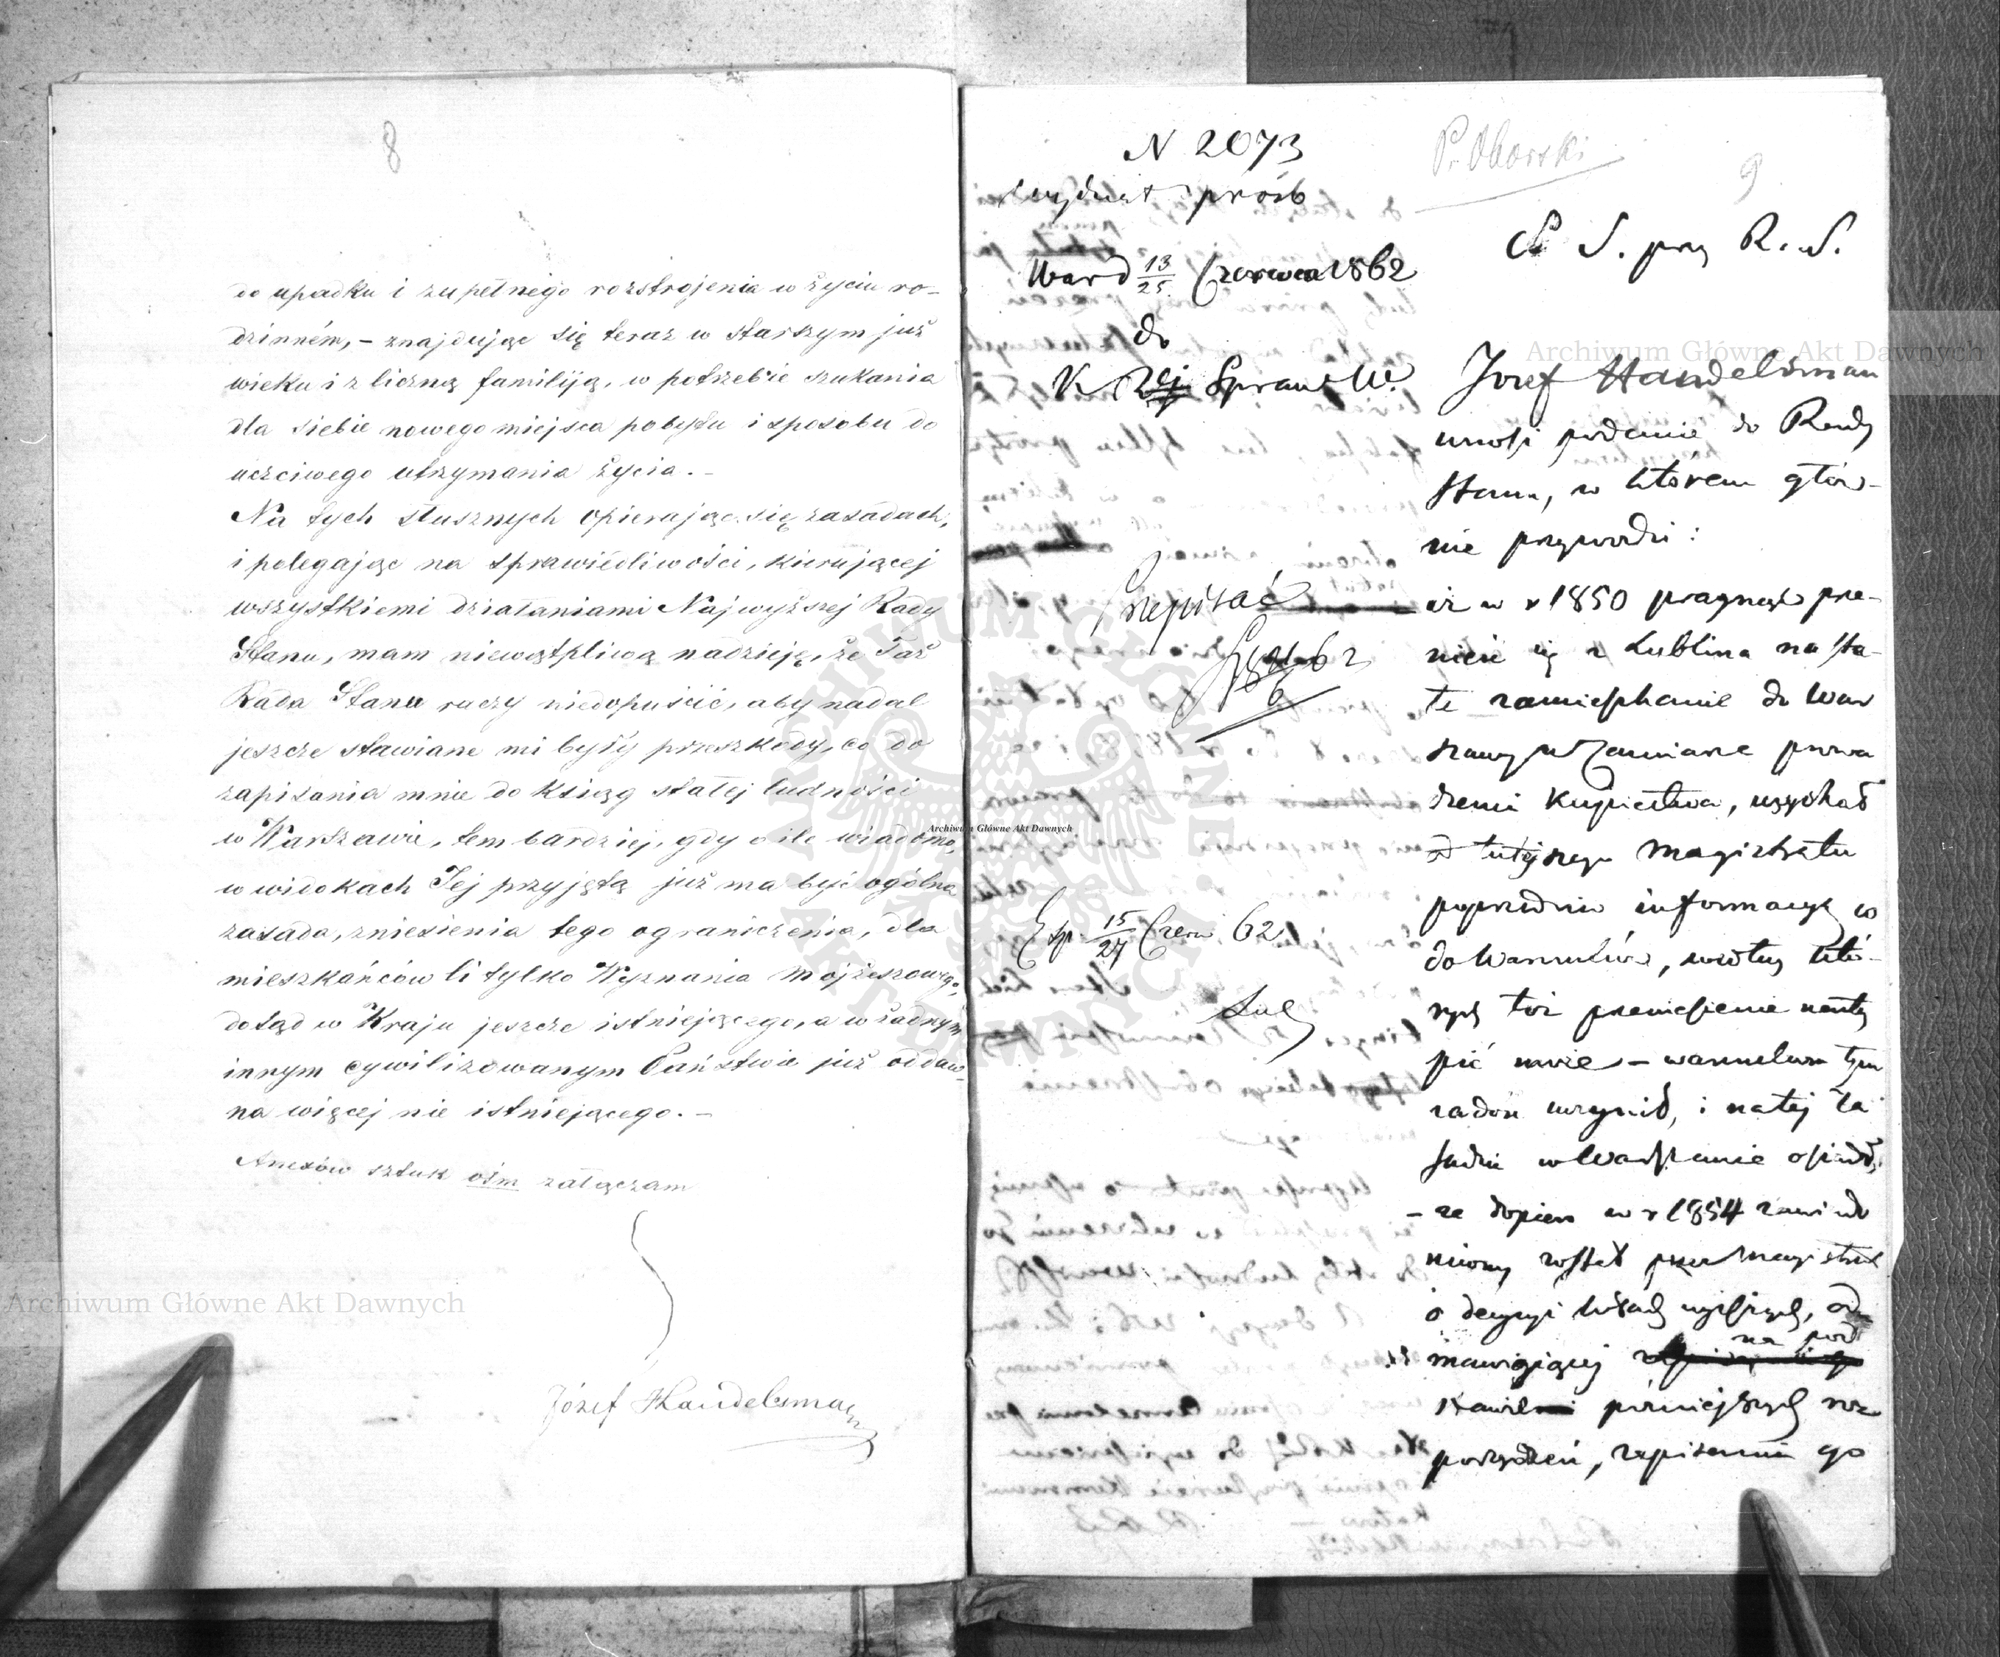 8
do upadku i zupełnego rozstrojenia w życiu ro-
dzinném, – znajdując się teraz w starszym już
wieku i z liczną familiją, w potrzebie szukania
dla siebie nowego miejsca pobytu i sposobu do
uczciwego utrzymania życia. –
Na tych słusznych opierając się zasadach,
i polegając na sprawiedliwości, kierującej
wszystkiemi działaniami Najwyższej Rady
Stanu, mam niewątpliwą nadzieję, że Taż
Rada Stanu raczy niedopuścić, aby nadal
jeszcze stawiane mi były przeszkody, co do
zapisania mnie do ksiąg stałej ludności
w Warszawie, tem bardziej, gdy o ile wiadomo,
w widokach Jej przyjętą już ma być ogólna
zasada, zniesienia tego ograniczenia, dla
mieszkańców li tylko Wyznania Mojżeszowego,
dotąd w Kraju jeszcze istniejącego, a w żadnym
innym cywilizowanym Państwie już oddaw-
na więcej nie istniejącego. –
Anexów sztuk ośm załączam
Józef Handelsman
N 2073
Wydział próśb
Pr. Oborski
9
S. przy R. S.
Wars d 13/25 Czerwca 1862
do
K Rzj Spraw
Przepisać
62
Exp. 15/27 Czerw 62
Józef Handelsman
wnosi podanie do Rady
Stanu, w którem głów-
nie przywodzi:
iż w r 1850 pragnąc prze-
nieść się z Lublina na sta-
łe zamieszkanie do War
szawy w zamiarze prowa
dzenia kupiectwa, uzyskał
od tutejszego Magistratu
poprzednio informacyą co
do warunków, według któ-
rych toż przeniesienie nastą
pić może – warunkom tym
zadość uczynił, i na tej za
sadzie w Warszawie osiadł,
– że dopiero w r 1854 zawiado
miony został przez Magistrat
o decyzyi Władz wyższych, od-
mawiającej na pod
stawie późniejszych roz
porządzeń, zapisania go
Archiwum Główne Akt Dawnych
Archiwum Główne Akt Dawnych
Archiwum Główne Akt Dawnych
ARCHIWUM GŁÓWNE AKT DAWNYCH